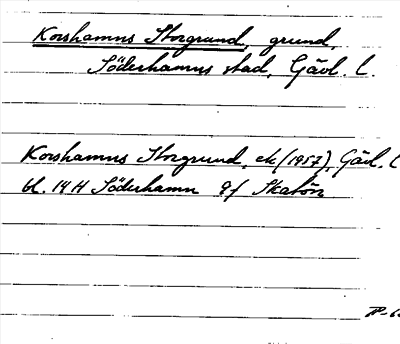 Korshamns Storgrund, grund,
Söderhamns stad, Gävl. l.
Korshamns Storgrund, ek (1957), Gävl. l
bl. 14H Söderhamn 9f Skatön